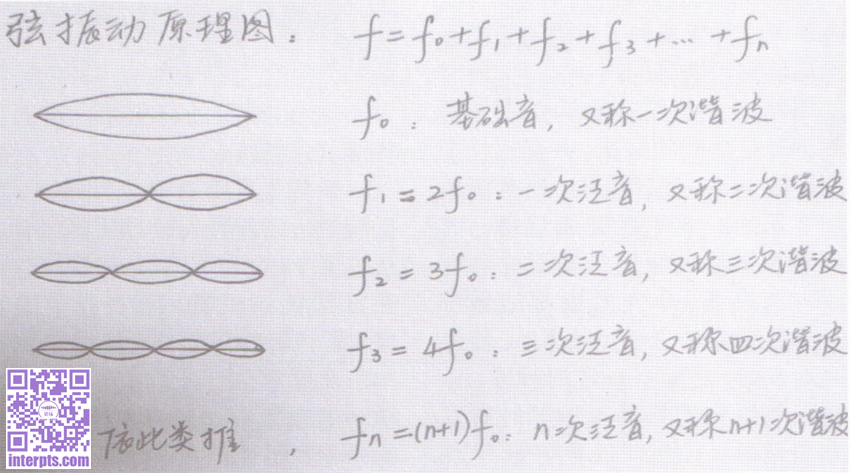 弦振动原理图： f=f₀+f₁+f₂+f₃+…+fₙ
f₀：基础音，又称一次谐波
f₁=2f₀：一次泛音，又称二次谐波
f₂=3f₀：二次泛音，又称三次谐波
f₃=4f₀：三次泛音，又称四次谐波
依此类推，fₙ=(n+1)f₀：n次泛音，又称n+1次谐波
interpts.com